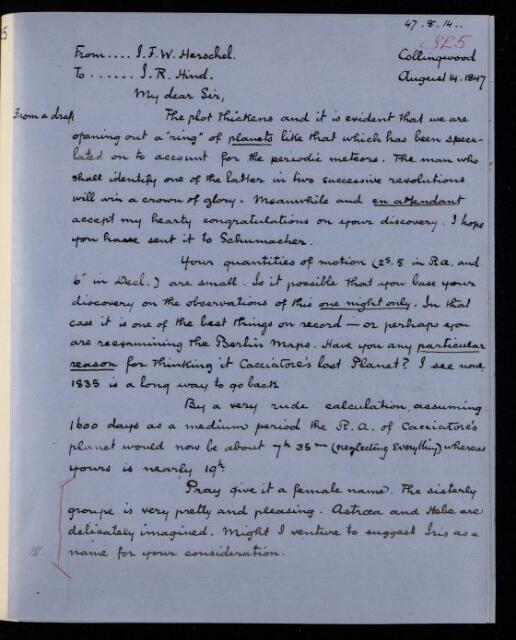 47.8.14..
325
From .... J.F.W. Herschel.
Collingwood
To ...... J.R. Hind.
August 14. 1847
My dear Sir,
From a draft
The plot thickens and it is evident that we are
opening out a "ring" of planets like that which has been specu-
lated on to account for the periodic meteors. The man who
shall identify one of the latter in two successive revolutions
will win a crown of glory. Meanwhile and en attendant
accept my hearty congratulations on your discovery. I hope
you have sent it to Schumacher.
Your quantities of motion (2s.5 in R.a. and
6" in Decl.) are small. Is it possible that you base your
discovery on the observations of this one night only. In that
case it is one of the best things on record — or perhaps you
are reexamining the Berlin Maps. Have you any particular
reason for thinking it Cacciatore's lost Planet? I see none,
1835 is a long way to go back
By a very rude calculation, assuming
1600 days as a medium period the R.A. of Cacciatore's
planet would now be about 7h 35m (neglecting Everything) whereas
yours is nearly 19h
Pray give it a female name. The sisterly
groupe is very pretty and pleasing. Astræa and Hebe are
delicately imagined. Might I venture to suggest Iris as a
name for your consideration.